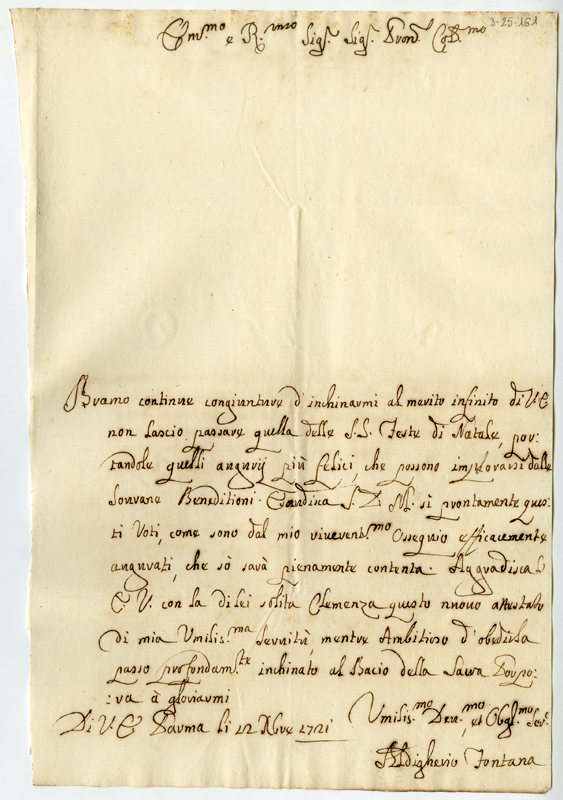 3-25-161
Em.mo e R.mo Sig.r Sig.r Pron. Col.mo
Bramo continue congiunture d'inchinarmi al merito infinito di V. E
non lascio passare quella delle S.S. Feste di Natale, por:
tandole quelli augurij più felici, che possono implorarsi dalle
Sovrane Beneditioni. Esaudisca S. D. M. sì prontamente ques:
ti Voti, come sono dal mio riverent.mo Ossequio efficacemente
augurati, che sò sarà pienamente contenta. Aggradisca
E. V. con la di lei solita Clemenza questo nuovo attestato
di mia Umilis.ma Servitù, mentre Ambitioso d'obedirla
passo profondam.te inchinato al Bacio della Sacra Porpo:
:ra à gloriarmi
Di V. E Parma li 12 Xbre 1721 Umilis.mo Dev.mo et Obgl.mo Ser.e
Aldigherio Fontana